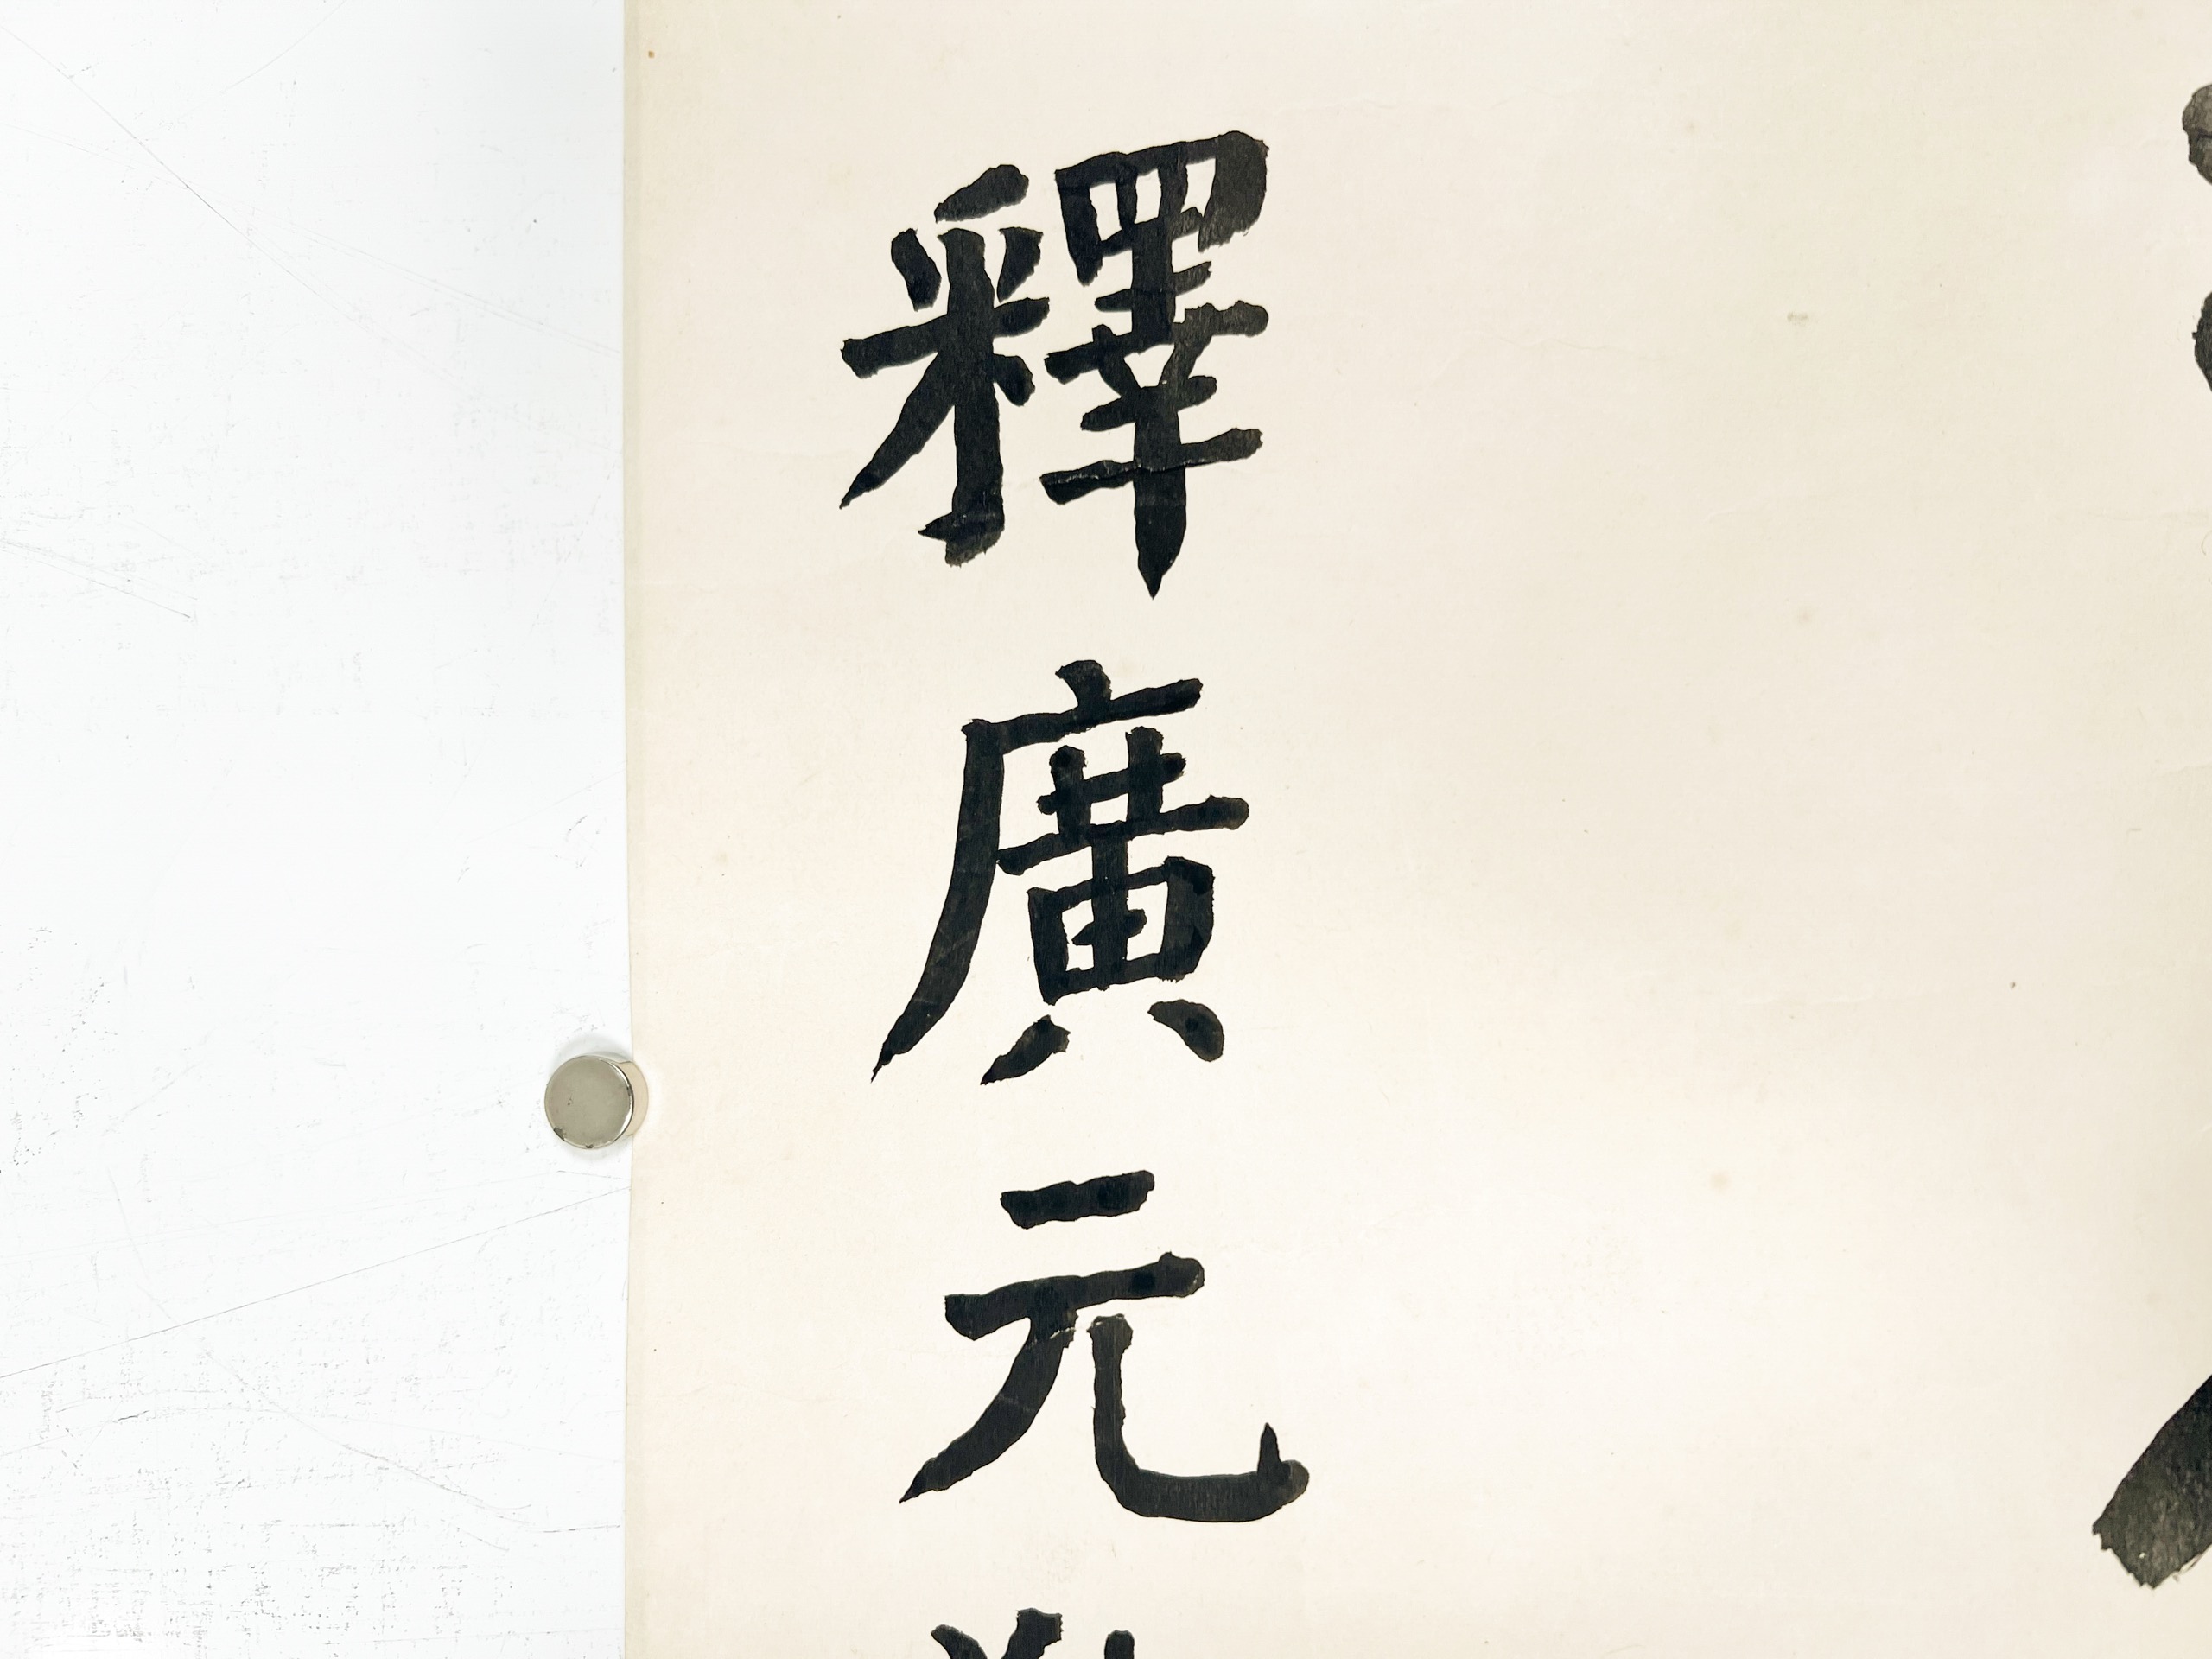 釋廣元